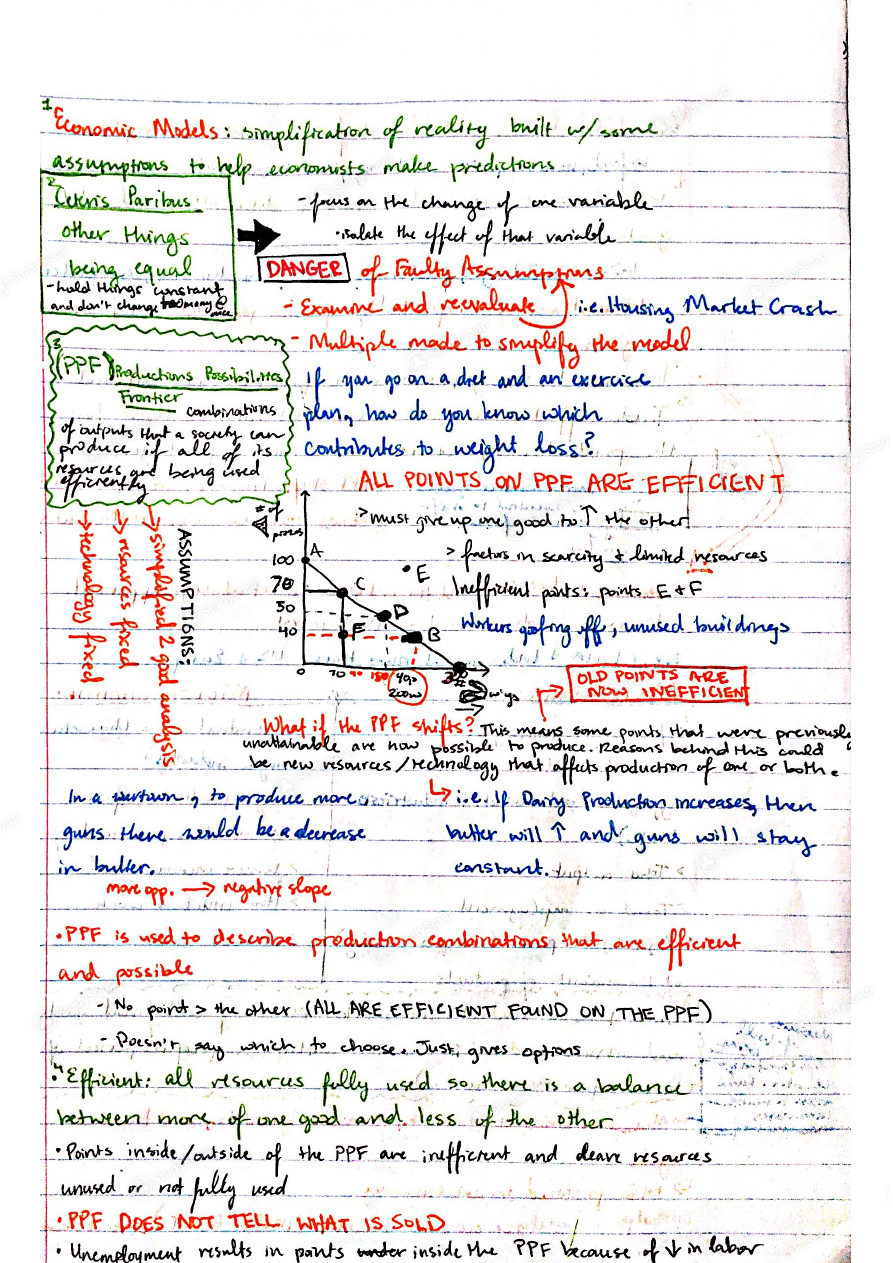 1
Economic Models: simplification of reality built w/ some
assumptions to help economists make predictions
2
Ceteris Paribus:
other things
being equal
- hold things constant
and don't change too many @
once
- focus on the change of one variable
• isolate the effect of that variable
DANGER of Faulty Assumptions
- Examine and reevaluate i.e. Housing Market Crash
- Multiple made to simplify the model
If you go on a diet and an exercise
plan, how do you know which
contributes to weight loss?
3
(PPF) Productions Possibilities
Frontier
combinations
of outputs that a society can
produce if all of its
resources are being used
efficiently
ASSUMPTIONS:
→ simplified 2 good analysis
→ resources fixed
→ technology fixed
ALL POINTS ON PPF ARE EFFICIENT
> must give up one good to ↑ the other
> factors in scarcity & limited resources
Inefficient points: points E & F
Workers goofing off, unused buildings
# of
pizzas
100 A
70 C
50 D
40 F B
E
0 70 90 150 40p
200w
# wigs
OLD POINTS ARE
NOW INEFFICIENT
What if the PPF shifts? This means some points that were previously
unattainable are now possible to produce. Reasons behind this could
be new resources/technology that affects production of one or both.
↳ i.e. If Dairy Production increases, then
butter will ↑ and guns will stay
constant.
In a wartown, to produce more
guns there would be a decrease
in butter.
more opp. → negative slope
• PPF is used to describe production combinations that are efficient
and possible
- No point > the other (ALL ARE EFFICIENT FOUND ON THE PPF)
- Doesn't say which to choose. Just gives options
4
• Efficient: all resources fully used so there is a balance
between more of one good and less of the other
• Points inside/outside of the PPF are inefficient and leave resources
unused or not fully used
• PPF DOES NOT TELL WHAT IS SOLD
• Unemployment results in points under inside the PPF because of ↓ in labor